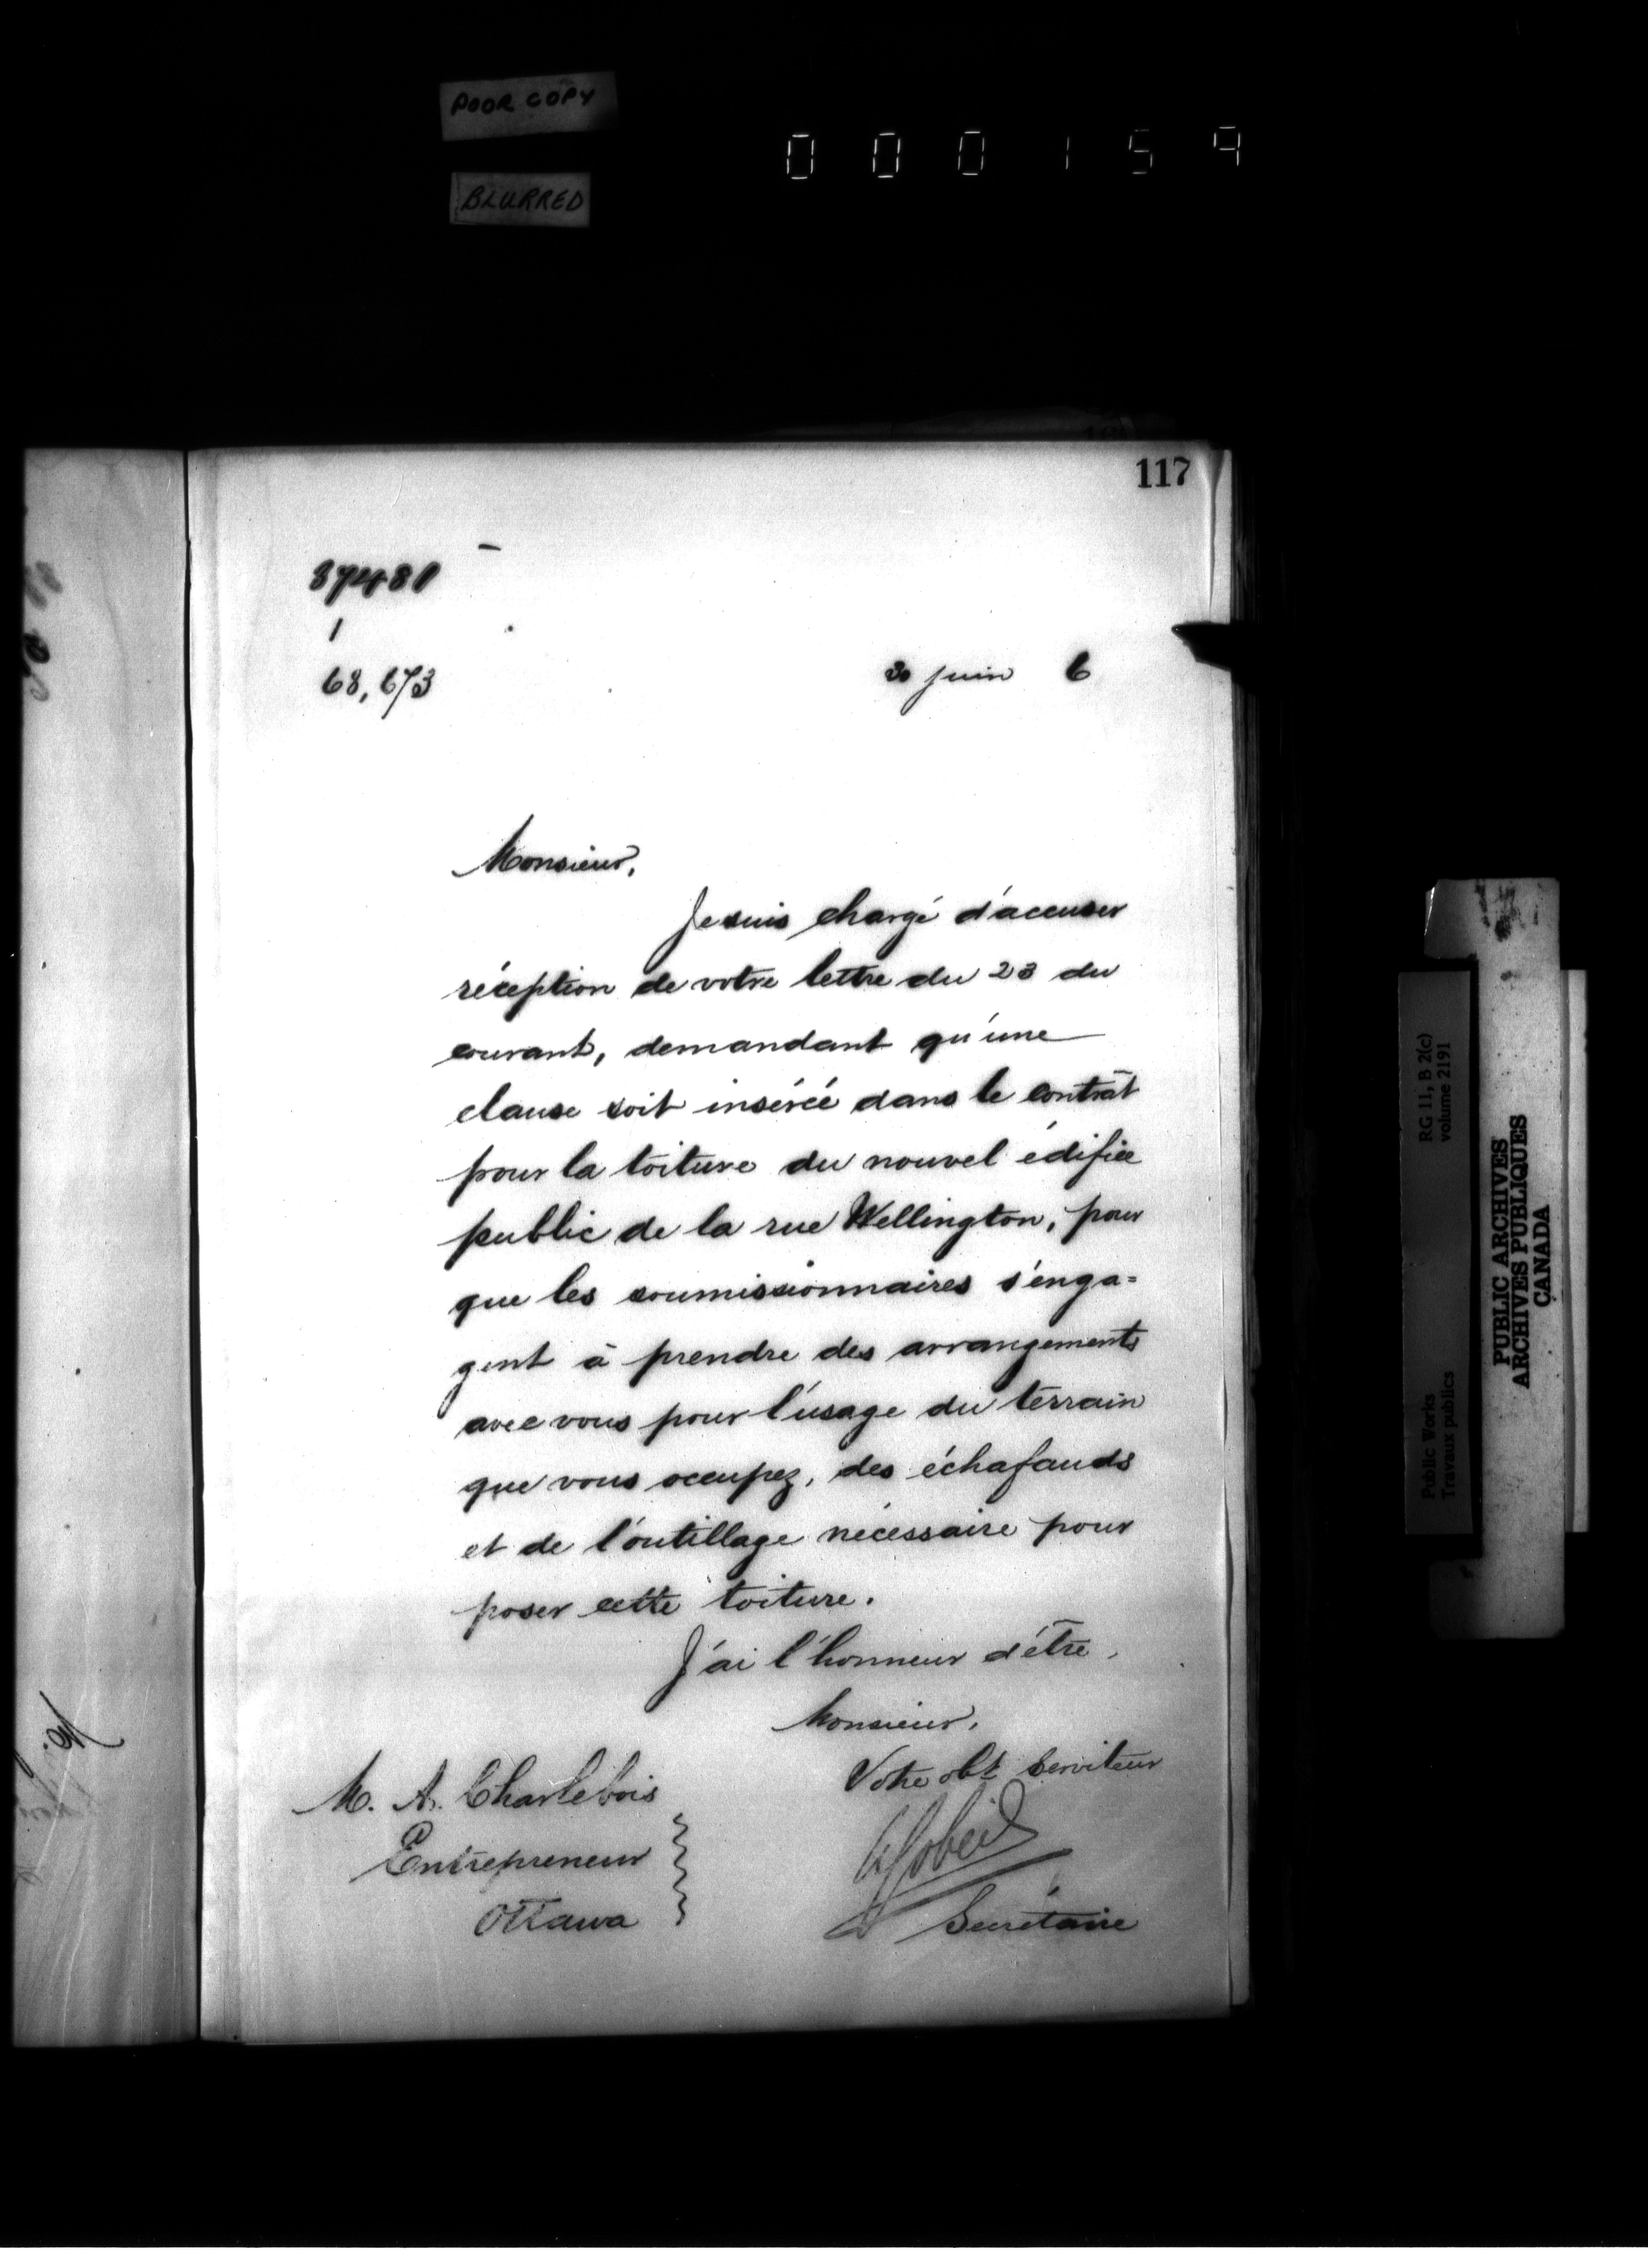 POOR COPY
BLURRED
000159
117
37481
1
68,673
30 juin 6
Monsieur,
Je suis chargé d'accuser
réception de votre lettre du 23 du
courant, demandant qu'une
clause soit insérée dans le contrat
pour la toiture du nouvel édifice
public de la rue Wellington, pour
que les soumissionnaires s'enga=
gent à prendre des arrangements
avec vous pour l'usage du terrain
que vous occupez, des échafauds
et de l'outillage nécessaire pour
poser cette toiture.
J'ai l'honneur d'être,
Monsieur,
Votre obt. Serviteur
A Gobeil
Secrétaire
M. A. Charlebois
Entrepreneur
Ottawa
RG 11, B 2(c)
volume 2191
Public Works
Travaux publics
PUBLIC ARCHIVES
ARCHIVES PUBLIQUES
CANADA